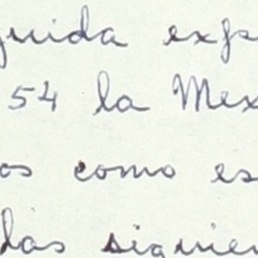 guida exp
54 la Mex
os como es
das siguien